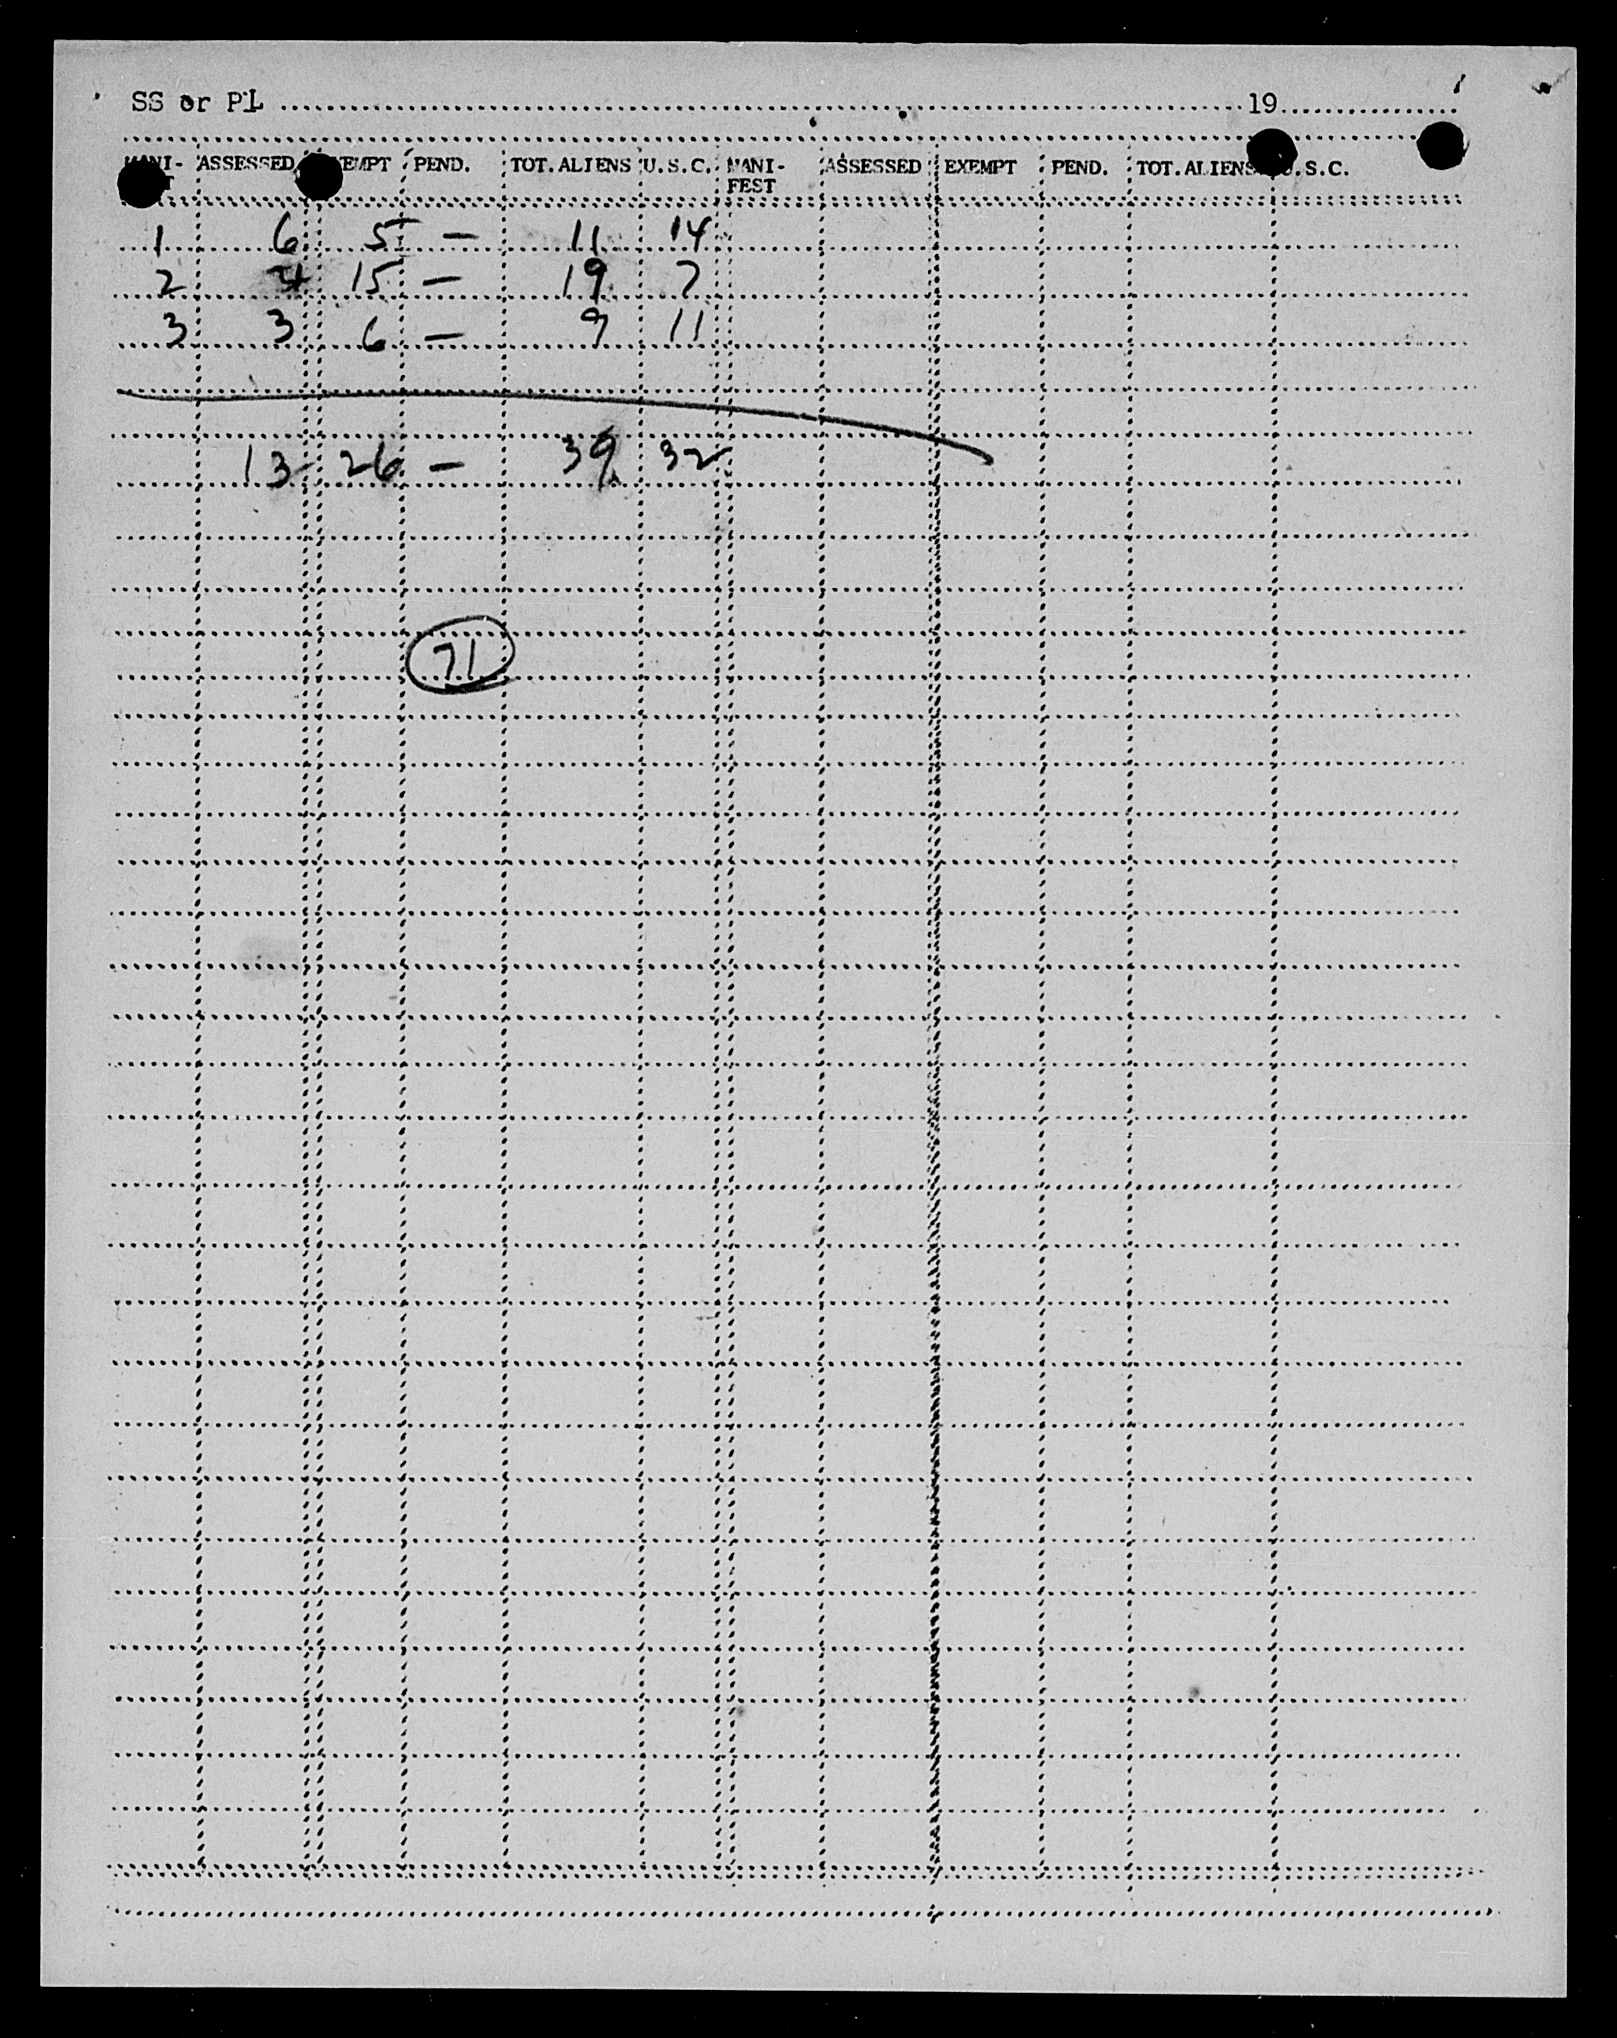 SS or PL ........ 19........
MANI- ASSESSED EXEMPT PEND. TOT. ALIENS U.S.C. MANI- ASSESSED EXEMPT PEND. TOT. ALIENS U.S.C.
FEST FEST
1 6 5 — 11 14
2 4 15 — 19 7
3 3 6 — 9 11
13 26 — 39 32
71